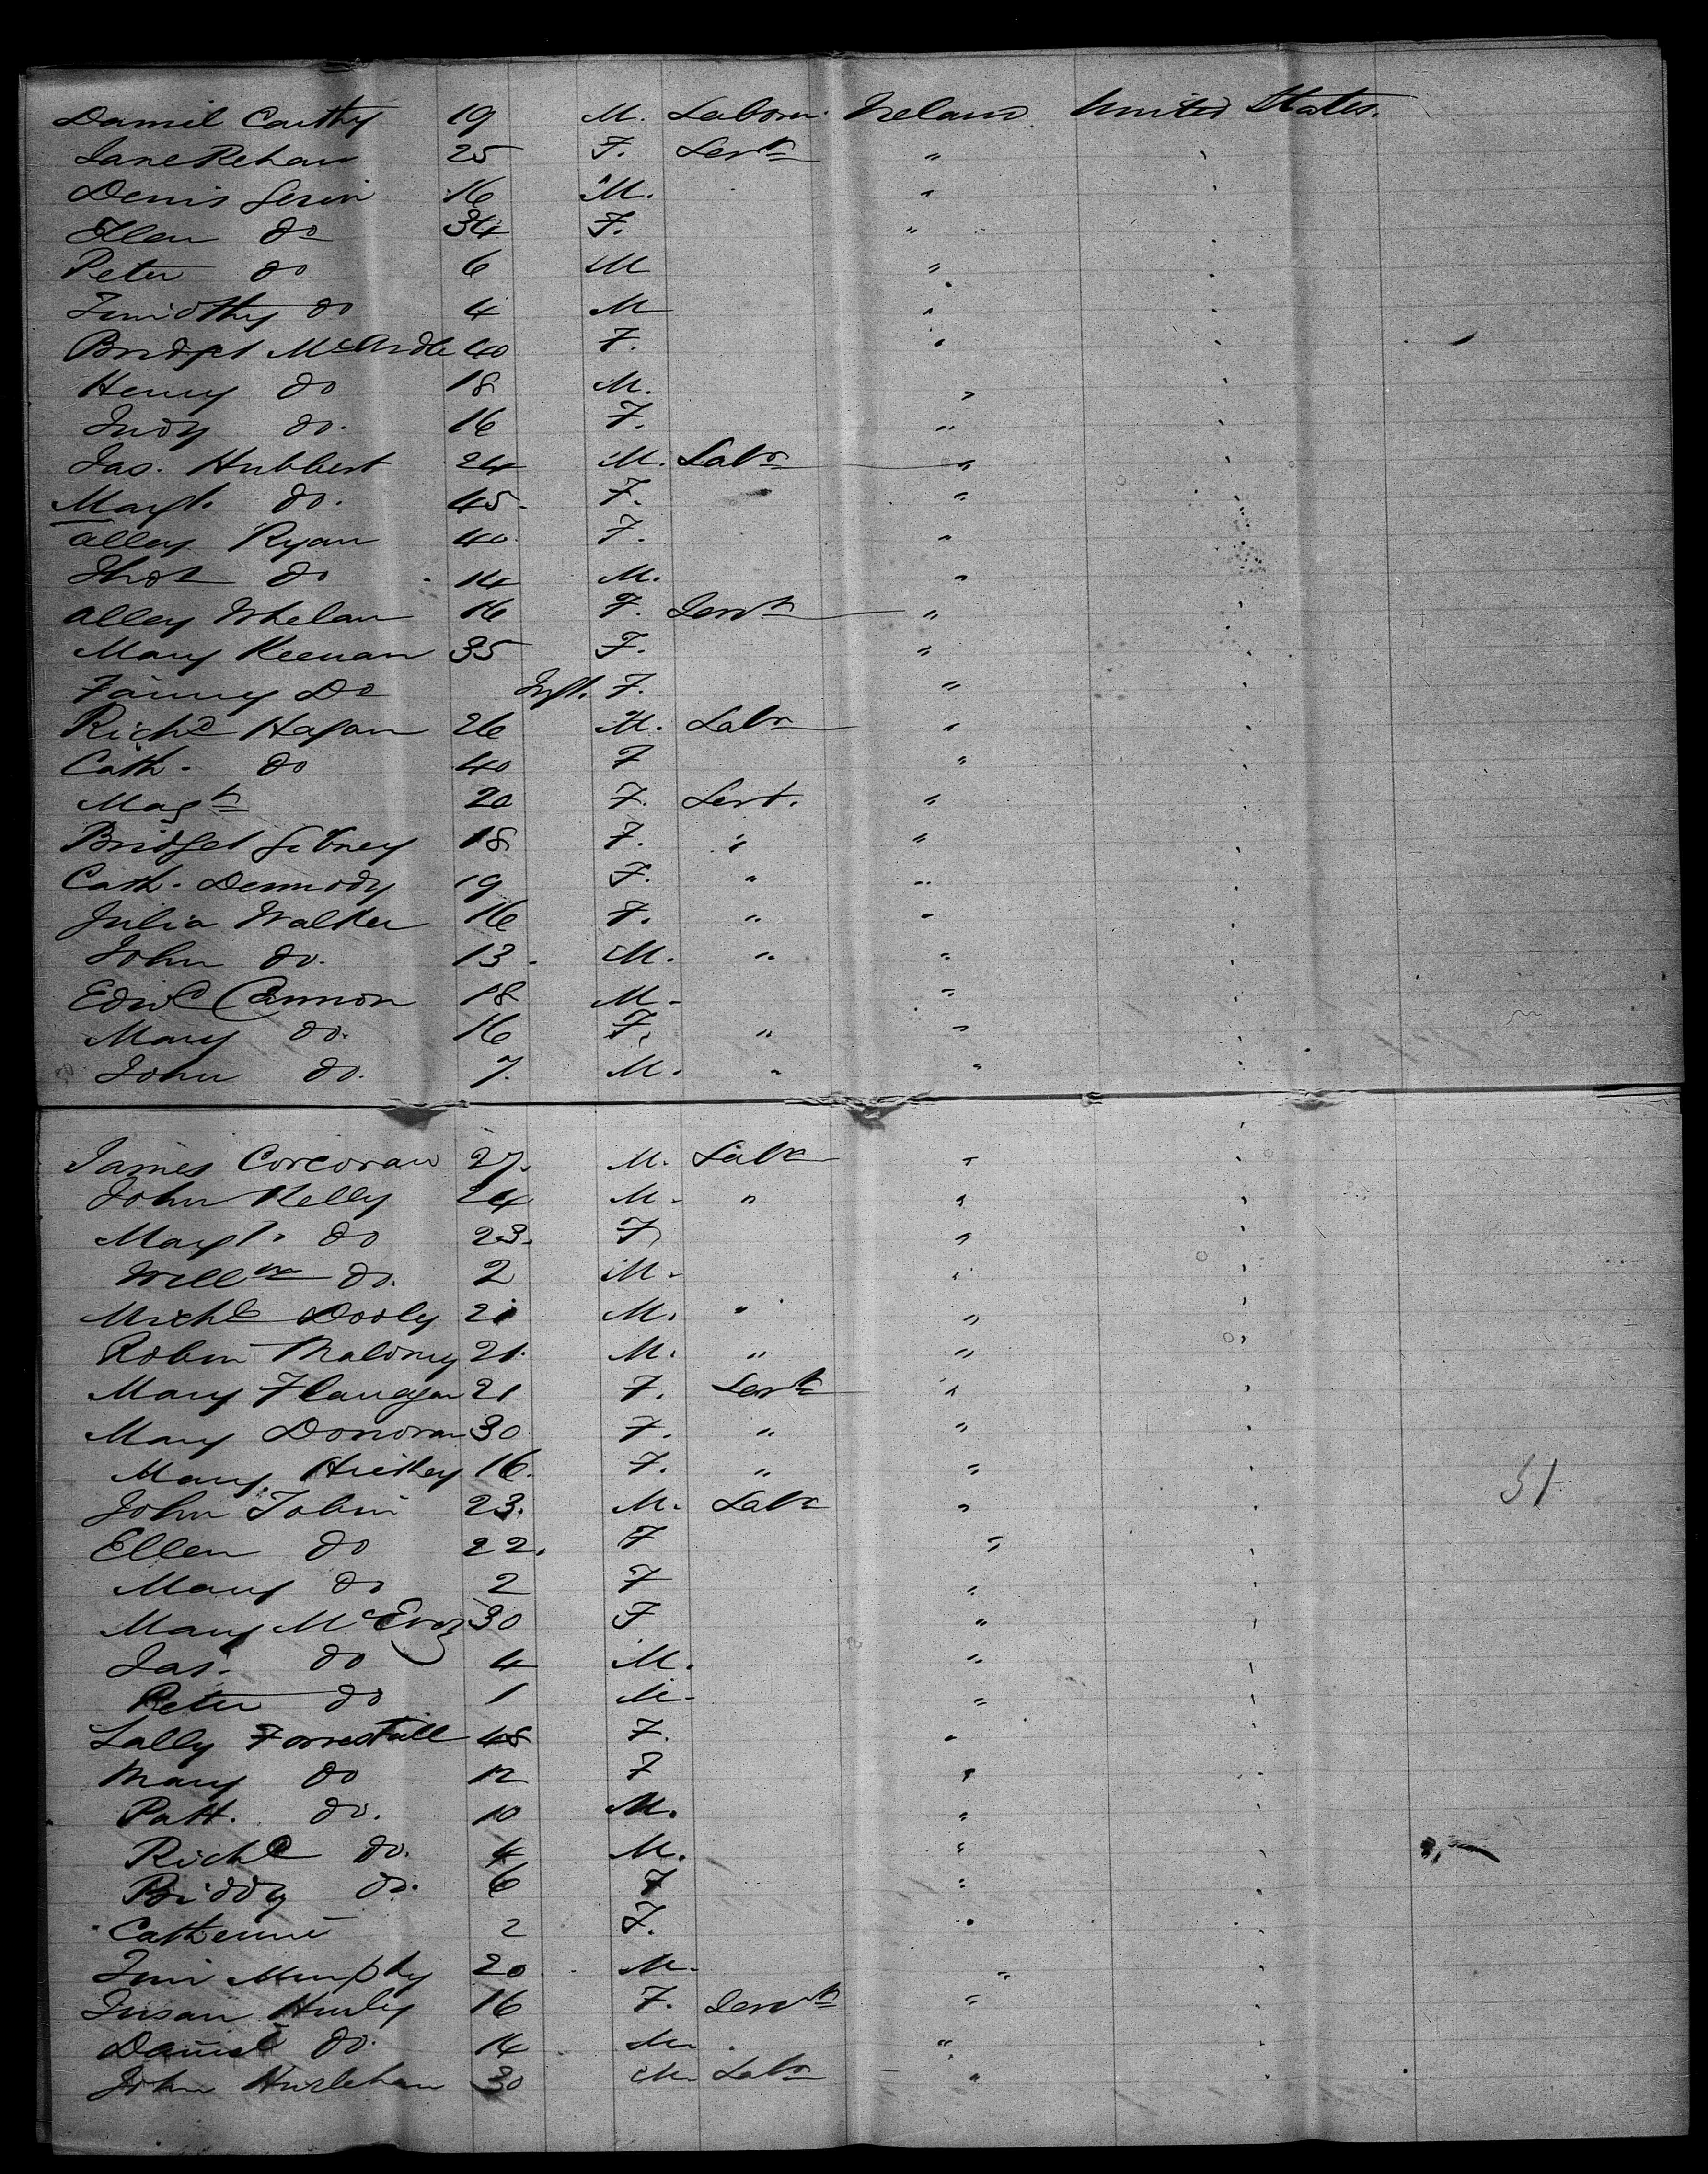 Daniel Carthy 19 M. Labourr Ireland United States.
Jane Rehan 25 F. Servt " "
Denis 16 M. " "
Ellen do 34 F. " "
Peter do 6 M " "
Timothy do 4 M " "
Bridget McArdle 40 F. " "
Henry do 18 M. " "
Judy do. 16 F. " "
Jas. Hubbert 24 M. Labr " "
Margt. do. 45. F. " "
Alley Ryan 40. F. " "
Thos do 14 M. " "
Alley Whelan 16 F. Servt " "
Mary Keenan 35 F. " "
Fanny Do Inft. F. " "
Richd Hagan 26 M. Labr " "
Cath. do 40 F " "
Magt 20 F. Servt. " "
Bridget Gibney 18 F. " " "
Cath. Dermody 19 F. " " "
Julia Walker 16 F. " " "
John do. 13. M. " " "
Edwd Cannon 18 M. " "
Mary do. 16 F. " " "
John do. 7. M. " " "
James Corcoran 27. M. Labr " "
John Kelly 24 M. " " "
Margt. do 23. F " "
Willm do. 2 M. " "
Michl Dooly 21 M. " " "
Robin Maloney 21. M. " " "
Mary Flanagan 21 F. Servt " "
Mary Donovan 30 F. " " "
Mary Hickey 16. F. " " "
John Tobin 23. M. Labr " "
Ellen do 22. F " "
Mary do 2 F " "
Mary McEvoy 30 F " "
Jas. do 4 M. " "
Peter do 1 M. " "
Sally Forrestall 48 F. " "
Mary do 12 F " "
Patt. do. 10 M. " "
Richd do. 4 M. " "
Biddy do. 6 F " "
Catherine 2 F. " "
Tim Murphy 20 M. " "
Susan Hurley 16 F. Servt " "
Daniel do. 14 M. " "
John Hurlehan 30 M. Labr " "
31